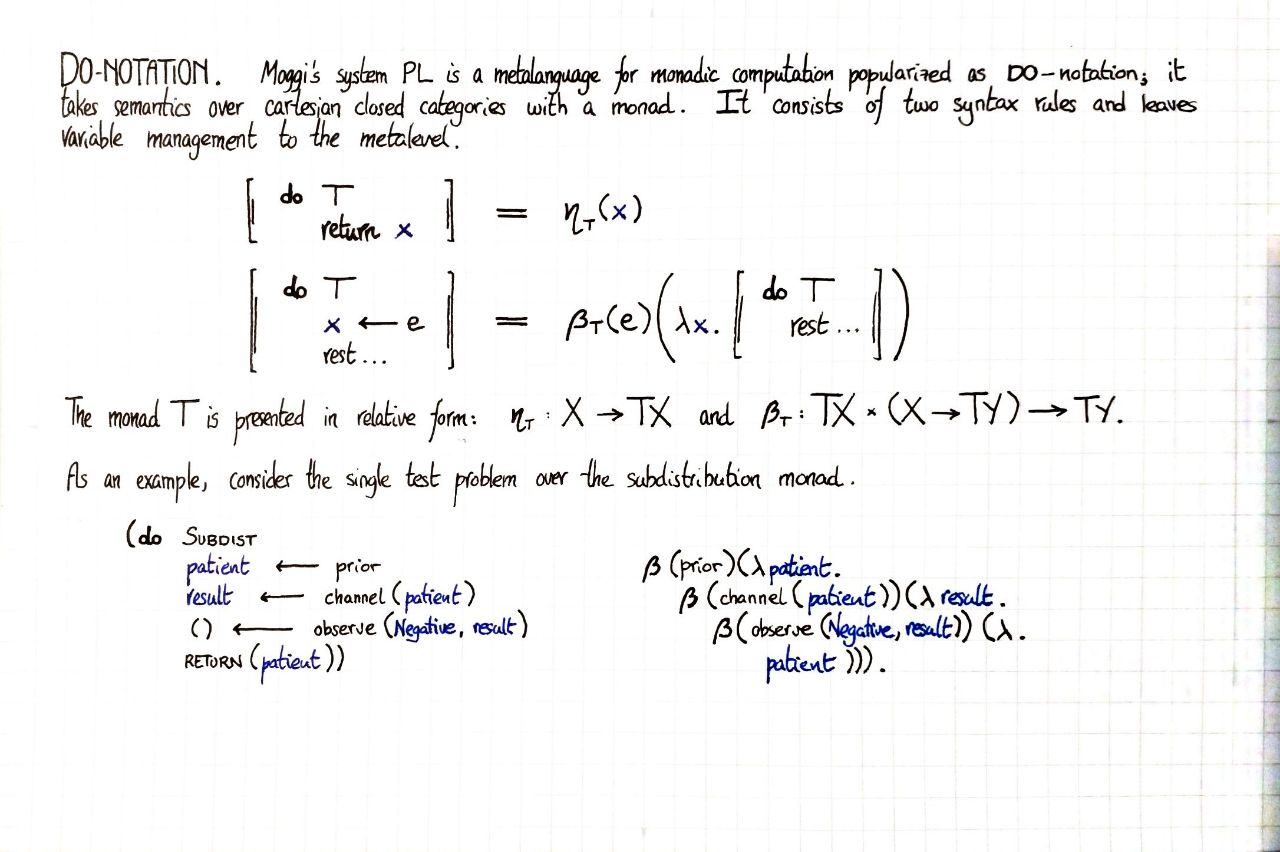 DO-NOTATION. Moggi's system PL is a metalanguage for monadic computation popularized as DO-notation; it
takes semantics over cartesian closed categories with a monad. It consists of two syntax rules and leaves
variable management to the metalevel.
⟦ do T
return x ⟧ = η_T(x)
⟦ do T
x ← e
rest... ⟧ = β_T(e)(λx. ⟦ do T
rest... ⟧)
The monad T is presented in relative form: η_T : X → TX and β_T : TX × (X → TY) → TY.
As an example, consider the single test problem over the subdistribution monad.
(do SUBDIST
patient ← prior
result ← channel (patient)
() ← observe (Negative, result)
RETURN (patient))
β (prior)(λ patient.
β (channel (patient))(λ result.
β (observe (Negative, result)) (λ.
patient ))).